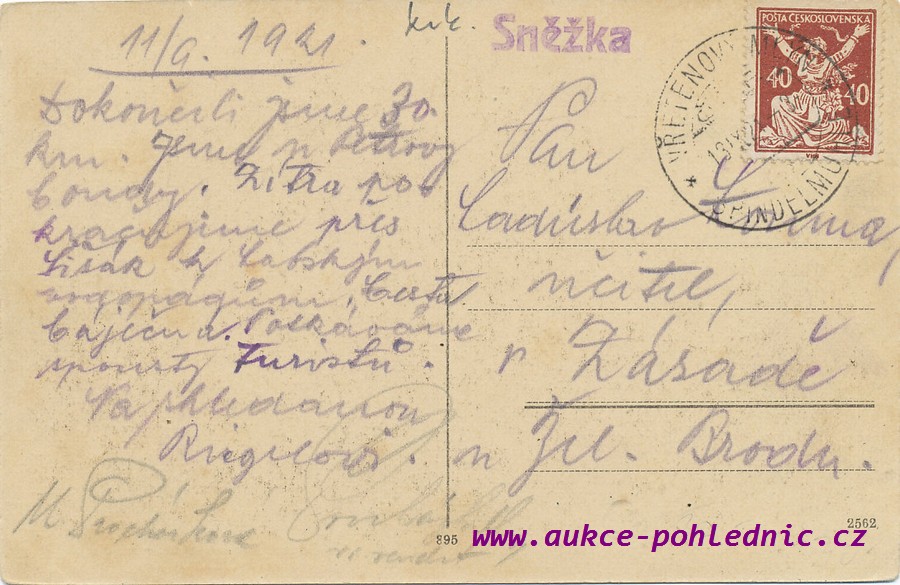 11/9. 1921.
Sněžka
POŠTA ČESKOSLOVENSKÁ
40 40
VŘETENOVÝ
ŠPINDELMÜ
Dokončili jsme 30
km. Jsme u Petrovy
boudy. Zítra po-
kračujeme přes
Sišák k Labským
vodopádům. Cesta
báječná. Potkáváme
spousty Turistů.
Na shledanou
Pan
Ladislav
učitel,
v Zásadě
u Žel. Brodu.
895
2562
www.aukce-pohlednic.cz